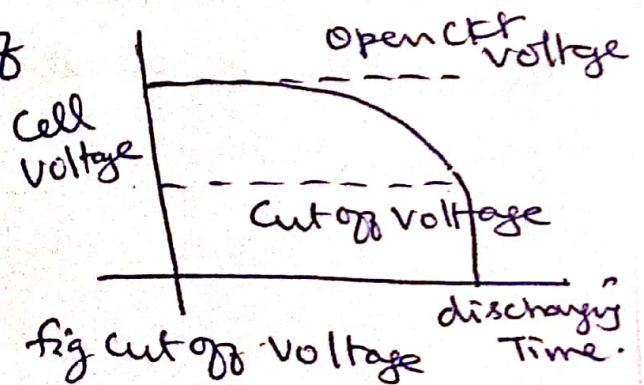 Open Ckt
voltge
Cell
voltage
Cut off voltage
discharging
Time.
fig cut off voltage